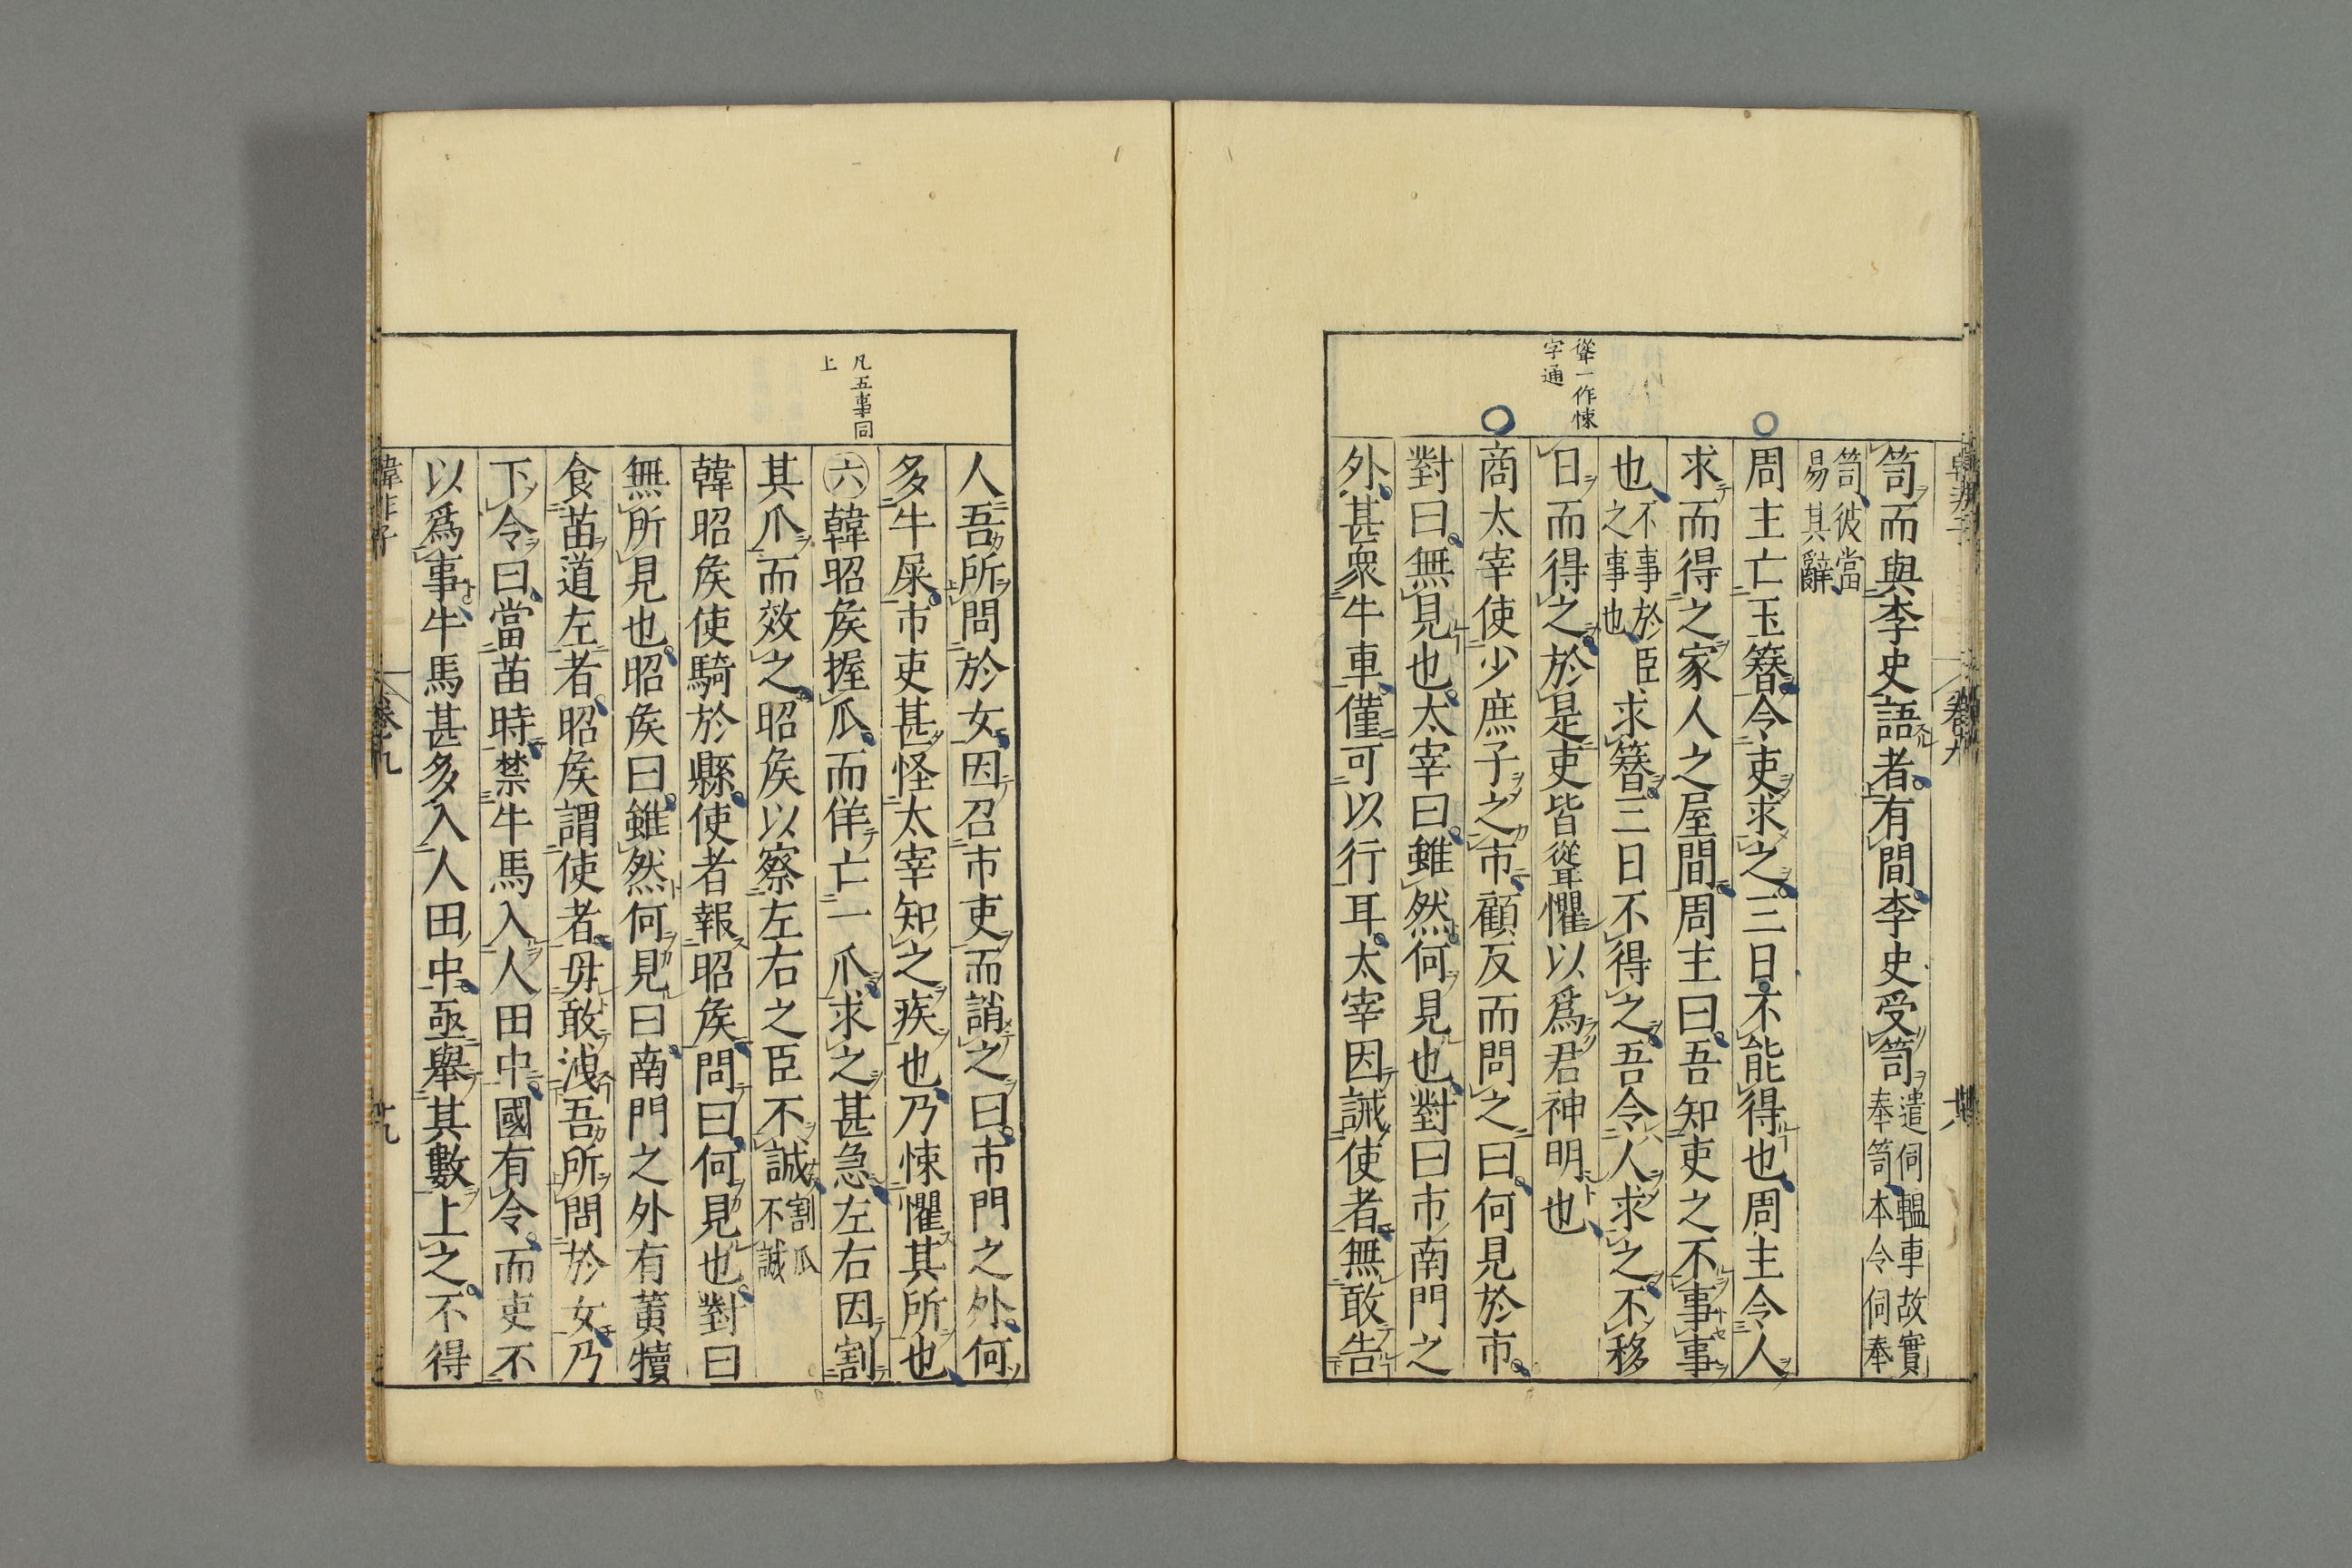 笥而與李史語者有間李史受笥遣伺轀車故實奉笥本令伺奉
笥彼當易其辭
周主亡玉簪令吏求之三日不能得也周主令人
求而得之家人之屋間周主曰吾知吏之不事事
也不事於臣之事也求簪三日不得之吾令人求之不移
日而得之於是吏皆聳懼以爲君神明也
商太宰使少庶子之市顧反而問之曰何見於市
對曰無見也太宰曰雖然何見也對曰市南門之
外甚衆牛車僅可以行耳太宰因誡使者無敢告
聳一作悚
字通
人吾所問於女因召市吏而誚之曰市門之外何
多牛屎市吏甚怪太宰知之疾也乃悚懼其所也
㊅韓昭矦握瓜而佯亡一爪求之甚急左右因割
其爪而效之昭矦以察左右之臣不誠割瓜不誠
韓昭矦使騎於縣使者報昭矦問曰何見也對曰
無所見也昭矦曰雖然何見曰南門之外有黃犢
食苗道左者昭矦謂使者毋敢洩吾所問於女乃
下令曰當苗時禁牛馬入人田中國有令而吏不
以爲事牛馬甚多入人田中亟舉其數上之不得
凡五事同
上
韓非子
卷九
十九